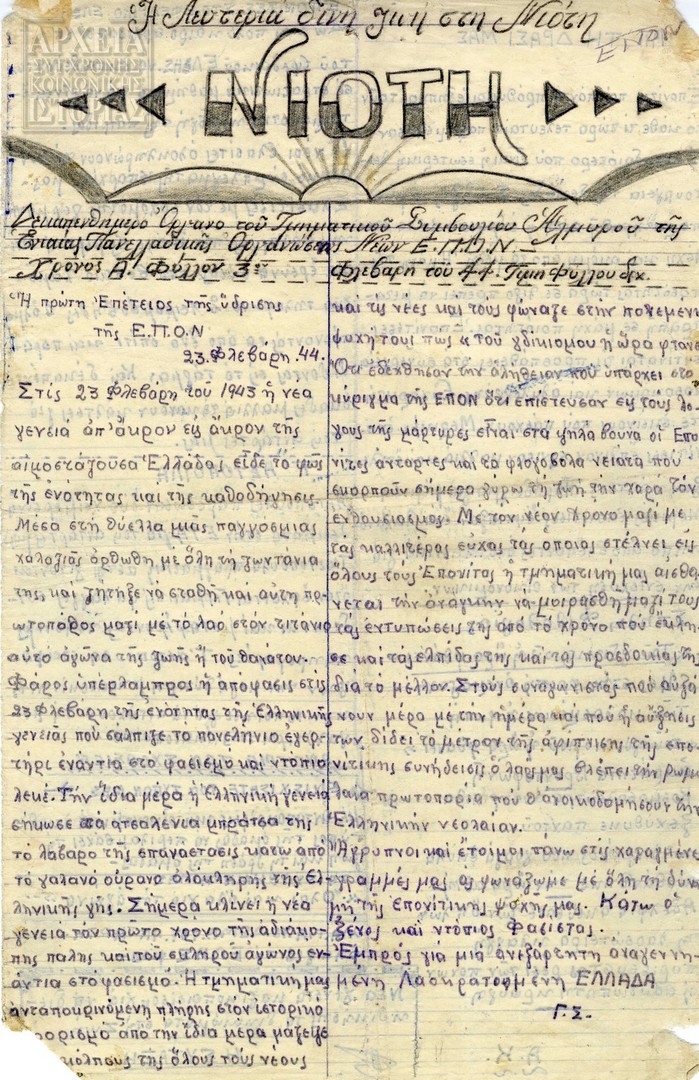 Ἡ Λευτεριά δίνη ζωή στη Νιότη
ΕΠΟΝ
ΑΡΧΕΙΑ
ΣΥΓΧΡΟΝΗΣ
ΚΟΙΝΩΝΙΚΗΣ
ΙΣΤΟΡΙΑΣ
ΝΙΟΤΗ
Δεκαπενθημερο Ὀργανο τοῦ Τμηματικοῦ Συμβουλίου Ἁλμυροῦ τῆς
Ενιαίας Πανελλαδικῆς Ὀργάνωσης Νέων Ε.Π.Ο.Ν.
Χρόνος Α. Φύλλον 3ον Φλεβάρη του 44. Τιμη Φύλλου δεχ.
Ἡ πρώτη Ἐπέτειος τῆς ὕδρισης
τῆς Ε.Π.ΟΝ
23. Φλεβάρη. 44.
Στίς 23 Φλεβάρη τοῦ 1943 ἡ νέα
γενειά ἀπ' ἄκρον εις ἄκρον τῆς
αιμοσταγούσα Ἑλλάδας εἶδε τό φῶς
τῆς ἑνότητας και τῆς καθοδήγησις.
Μέσα στή θύελλα μιᾶς παγγοσμιας
χαλαζιᾶς ὀρθωθη με ὅλη τή ζωντάνια
της, καί ζήτηξε νά σταθῆ και αυτη πρ-
ωτοπόρος μαζι μέ τό λαό στόν τιτάνιο
αὐτο αγῶνα τῆς ζωῆς ἤ τοῦ θανατον.
Φάρος ὑπέρλαμπρος ἡ ἀπόφασις στίς
23 Φλεβάρη τῆς ἑνότητας τῆς Ἑλληνικῆς
γενειάς πού σάλπιξε το πανεληνιο εγερ-
τήρι ἐνάντια στο φασισμο και ντόπιο
λεκέ. Τήν ἴδια μέρα ἡ Ἑλληνική γενειά
σήκωσε στα ἀτσαλένια μπράτσα της
τό λάβαρο τῆς ἐπαναστασις κατω ἀπό
τό γαλανό οὐρανο ὁλόκληρης της Ἑλ-
ληνικῆς γῆς. Σήμερα κλίνει ἡ νέα
γενεια τον πρῶτο χρόνο τῆς ἀδιάκο-
πης παλης και τοῦ σκληροῦ ἀγωνος εν-
άντια στό φασισμό. Ἡ τμηματικη μας
ἀνταποκρινόμενη πλήρης στον ἱστορικό
οορισμό ἀπο τήν ἴδια μέρα μάζεψε
κολπους της ὅλους τούς νέους
καί τις νέες και τους φωναξε στην πονεμενη
ψυχή τους πως « του γδικιομου ἡ ὥρα φτανει
Ὅτι εδέχθησαν την αληθειαν που ὑπάρχει στο
κύριγμα τῆς ΕΠΟΝ ὅτι ἐπίστευσαν εἰς τούς λό-
γους τῆς μάρτυρες εἶναι στά ψηλά βουνα οἱ Επο-
νίτες ἀνταρτες και τά φλογοβόλα νειατα που
σκορποῦν σήμερα γύρω τη ζωή την χαρα τον
ενθουσιασμος. Μέ τον νέον χρονο μαζι με
τάς καλλιτέρας εὐχας τάς οποιας στέλνει εις
ὅλους τούς Ἐπονίτας ἡ τμηματική μας αἰσθα-
νεται την ἀνάγκην νά μοιρασθῆ μαζί τους
τάς εντυπώσεις της από το χρόνο πού εκλη-
σε καί τάς ελπίδας της και τάς προσδοκίας της
διά το μέλλον. Στους συναγωνιστας που αυξά-
νουν μέρα με την ημέρα και που ἡ αὔξησις
των δίδει το μέτρον τῆς ἀφίπνισης της επο-
νίτικης συνήδεισις ὁ λαός μας βλέπει την ρωμα-
λαία πρωτοπορία πού θ' ἀνοικοδομήσουν την
Ἑλληνικήν νεολαίαν.
Ἄγρυπνοι καί ἕτοιμοι πανω στίς χαραγμένες
γραμμές μας ας φωνάξωμε με ὅλη τη δύνα-
μη της επονίτικης ψυχῆς μας. Κάτω ὁ
ξένος και ντόπιος Φασιστας.
Ἐμπρός γιά μιά ἀνεξάρτητη ἀναγενν-
μένη Λαοκρατουμένη ΕΛΛΑΔΑ
Γ.Σ.